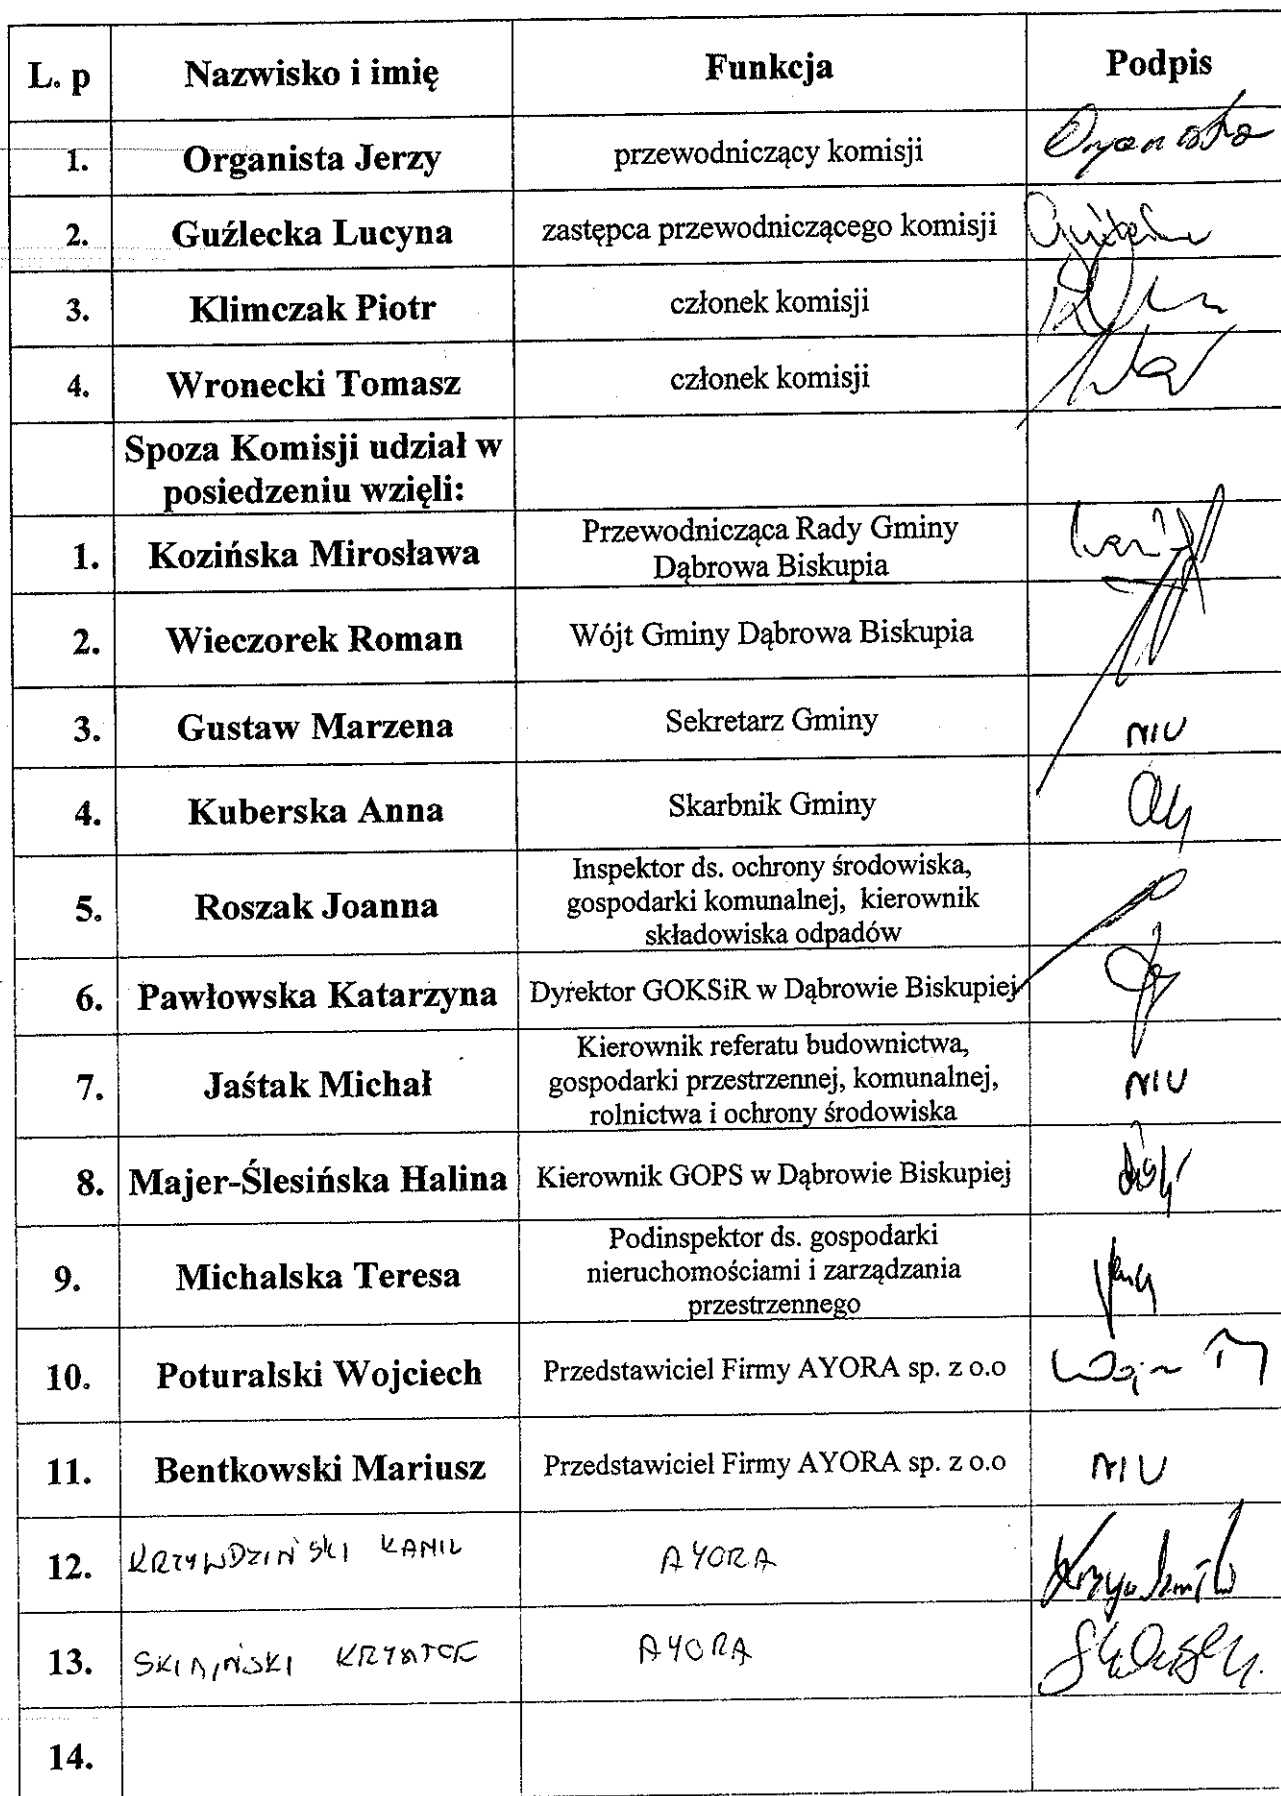 L. p Nazwisko i imię Funkcja Podpis
1. Organista Jerzy przewodniczący komisji
2. Guźlecka Lucyna zastępca przewodniczącego komisji
3. Klimczak Piotr członek komisji
4. Wronecki Tomasz członek komisji
Spoza Komisji udział w
posiedzeniu wzięli:
1. Kozińska Mirosława Przewodnicząca Rady Gminy
Dąbrowa Biskupia
2. Wieczorek Roman Wójt Gminy Dąbrowa Biskupia
3. Gustaw Marzena Sekretarz Gminy
4. Kuberska Anna Skarbnik Gminy
5. Roszak Joanna Inspektor ds. ochrony środowiska,
gospodarki komunalnej, kierownik
składowiska odpadów
6. Pawłowska Katarzyna Dyrektor GOKSiR w Dąbrowie Biskupiej
7. Jaśtak Michał Kierownik referatu budownictwa,
gospodarki przestrzennej, komunalnej,
rolnictwa i ochrony środowiska
8. Majer-Ślesińska Halina Kierownik GOPS w Dąbrowie Biskupiej
9. Michalska Teresa Podinspektor ds. gospodarki
nieruchomościami i zarządzania
przestrzennego
10. Poturalski Wojciech Przedstawiciel Firmy AYORA sp. z o.o
11. Bentkowski Mariusz Przedstawiciel Firmy AYORA sp. z o.o
12. KRZYWDZIŃSKI KAMIL AYORA
13. AYORA
14.